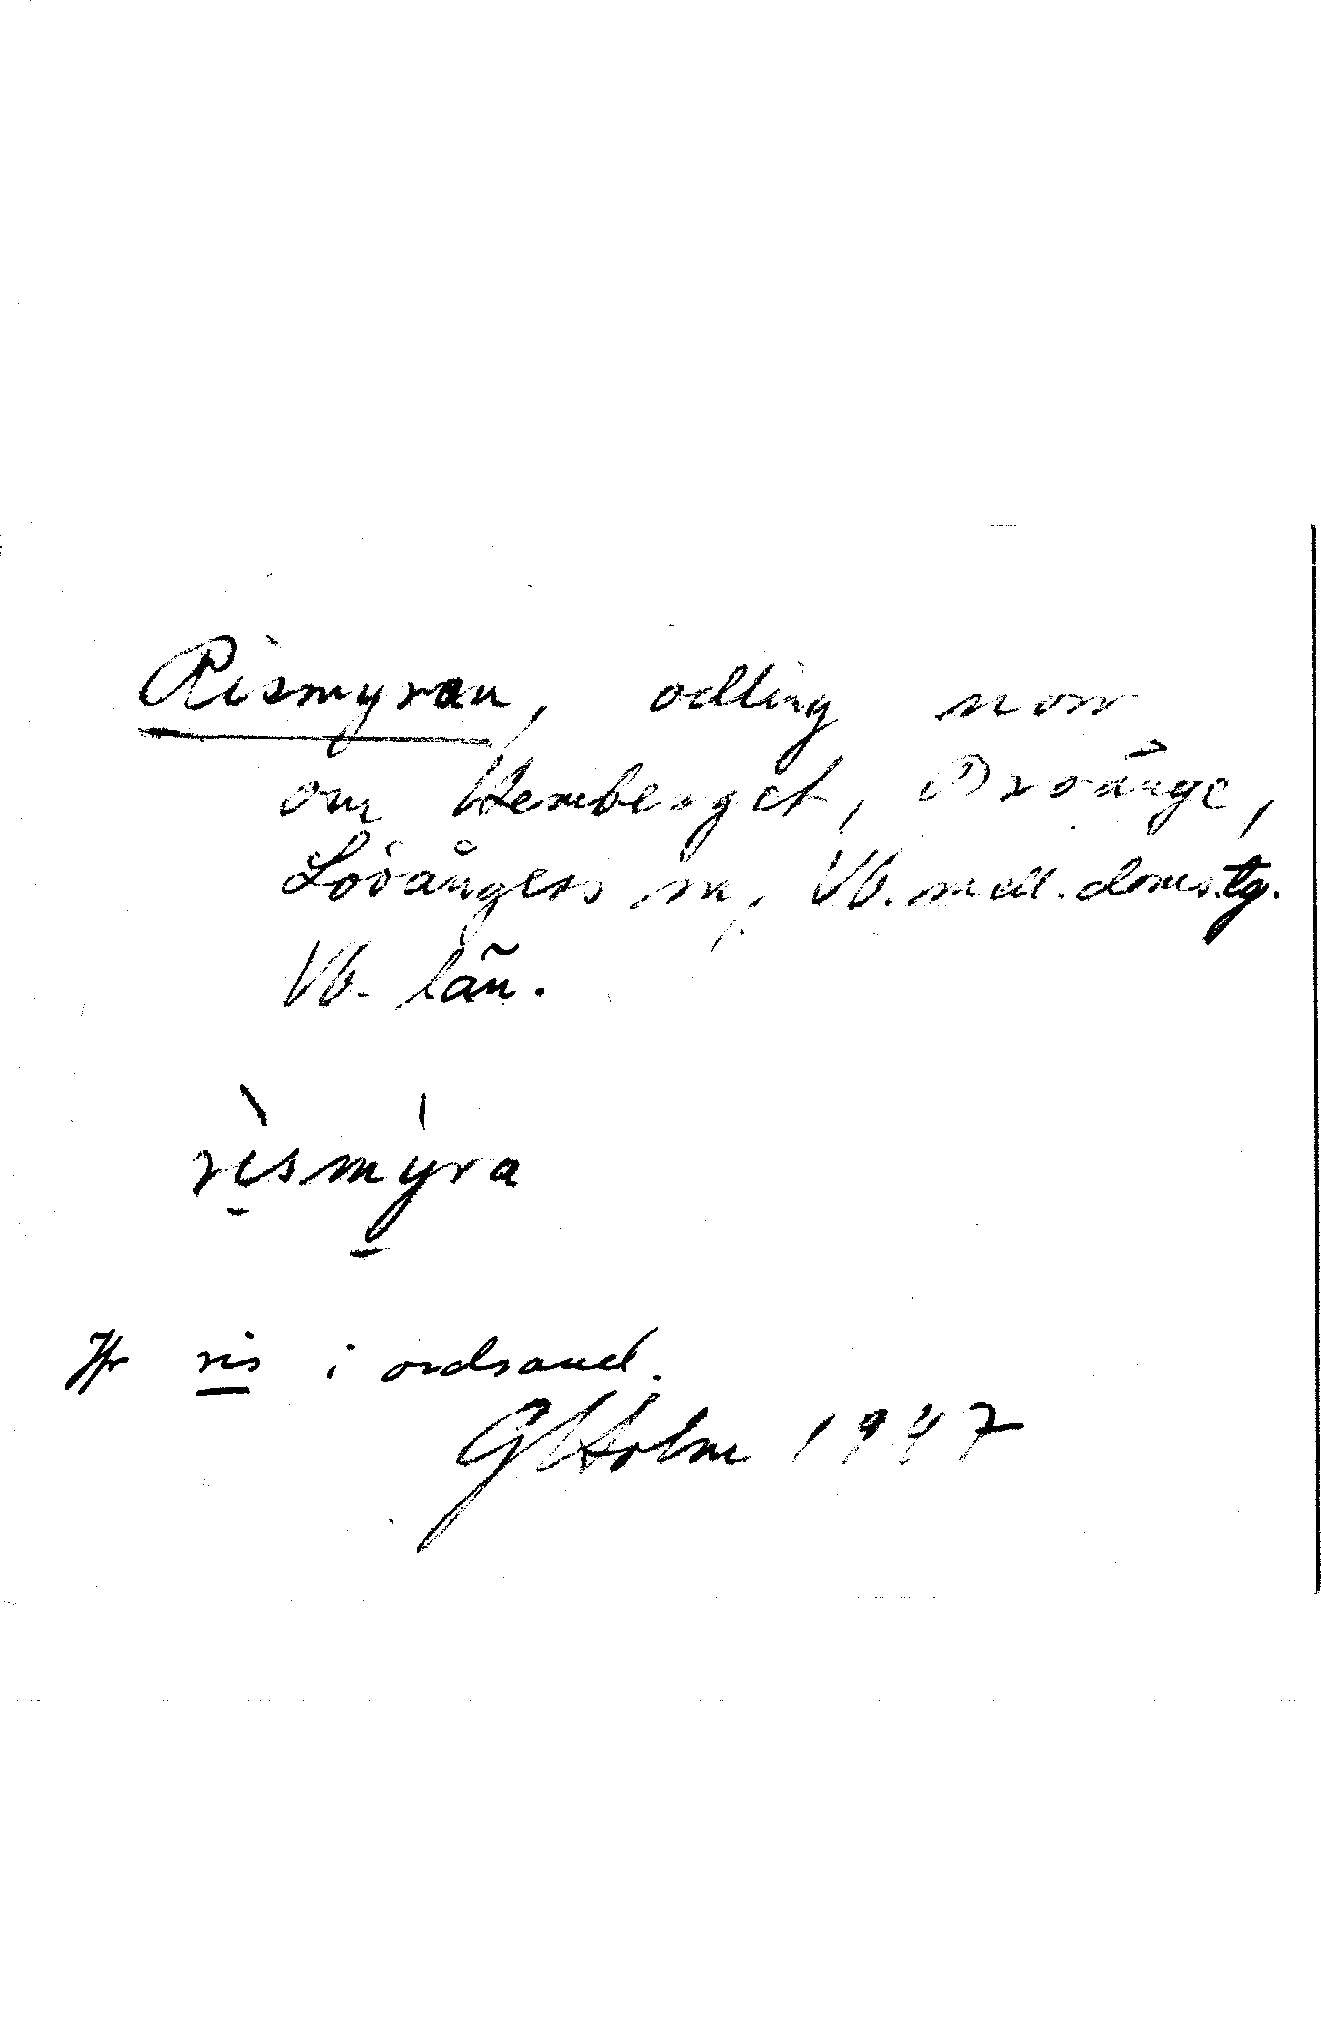 Rismyran, odling norr
om Hemberget, Broänge,
Lövångers sn, Vb. mell. doms.tg.
Vb. län.
rismyra
Jfr ris i ordsaml.
G Holm 1947